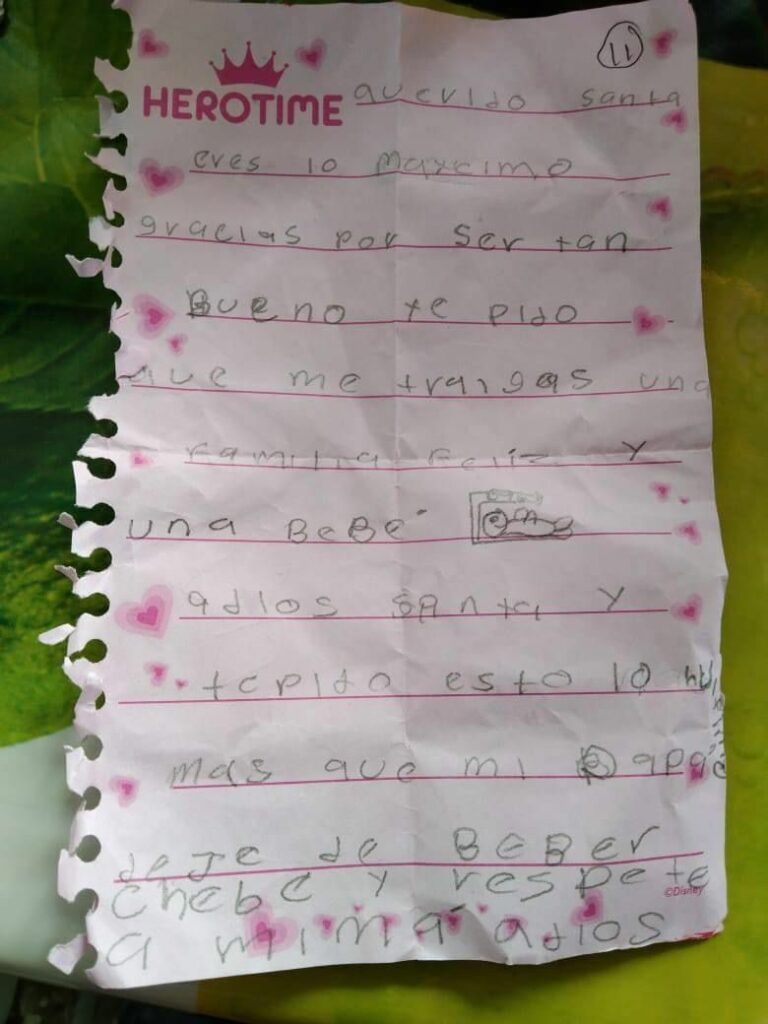 11
HEROTIME querido santa
eres lo maxcimo
gracias por ser tan
Bueno te pido
que me traigas una
familia feliz y
una BeBe
adios santa y
te pido esto lo
mas que mi papa
deje de BeBer
chebe y respete
©Disney
a mi má adios